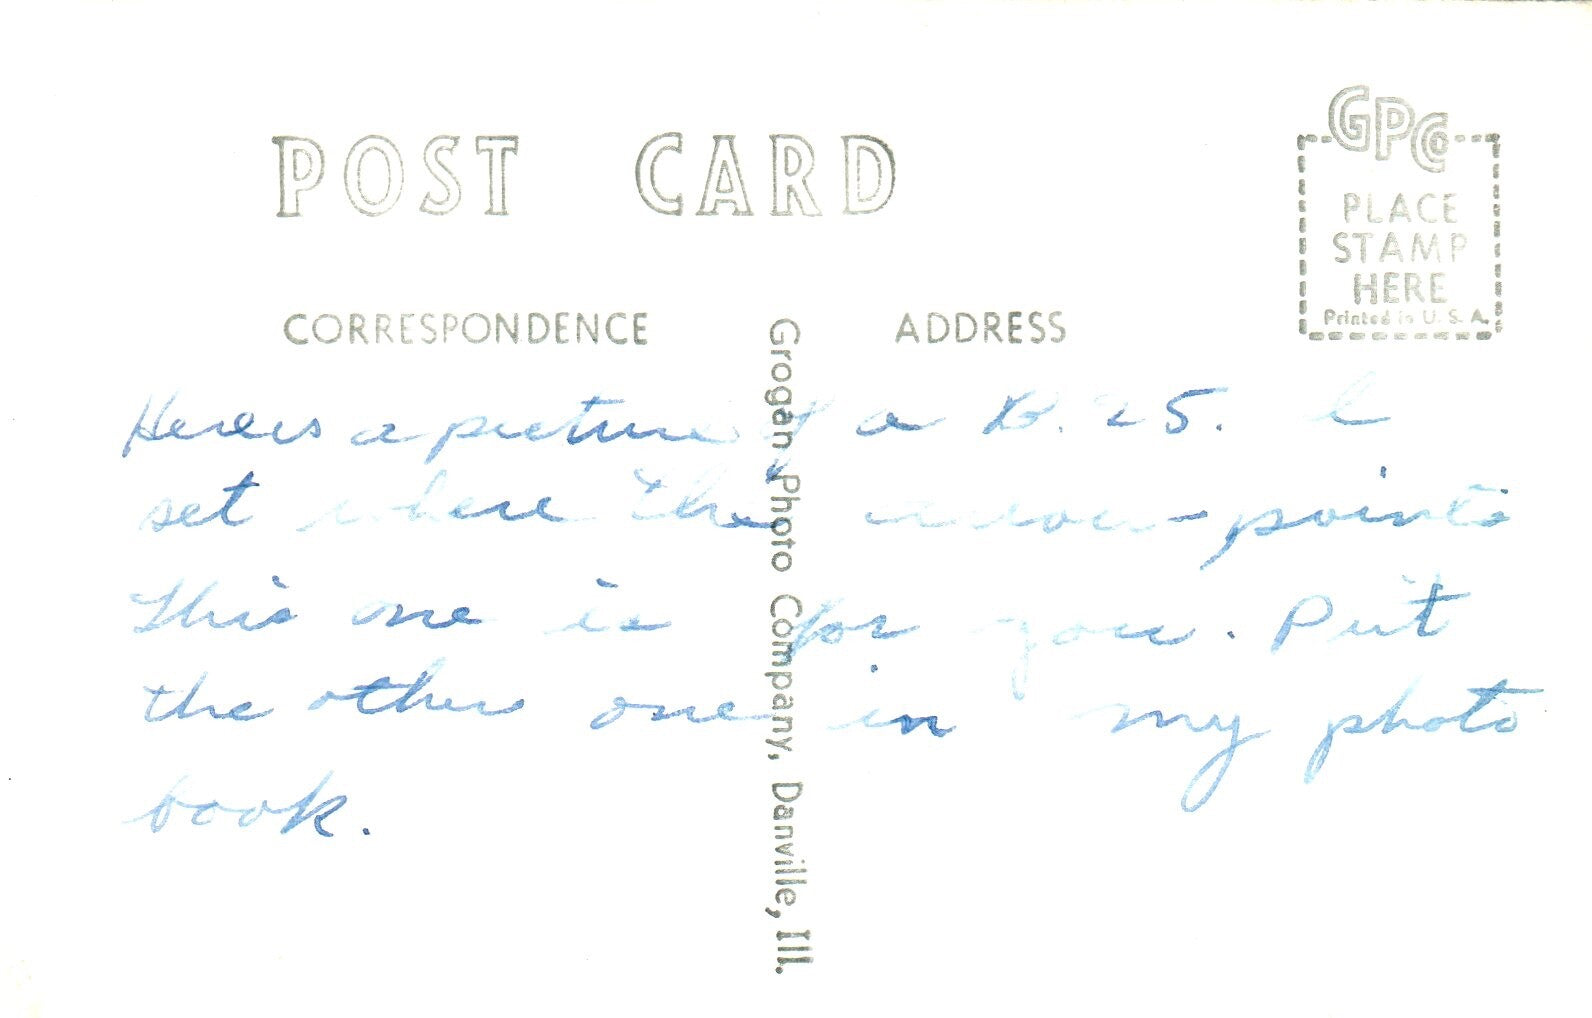 POST CARD
GPCo
PLACE
STAMP
HERE
Printed in U. S. A.
CORRESPONDENCE
ADDRESS
Grogan Photo Company, Danville, Ill.
Heres a picture of a B.25. I
set where the arrow-points
This one is for you. Put
the other one in my photo
book.